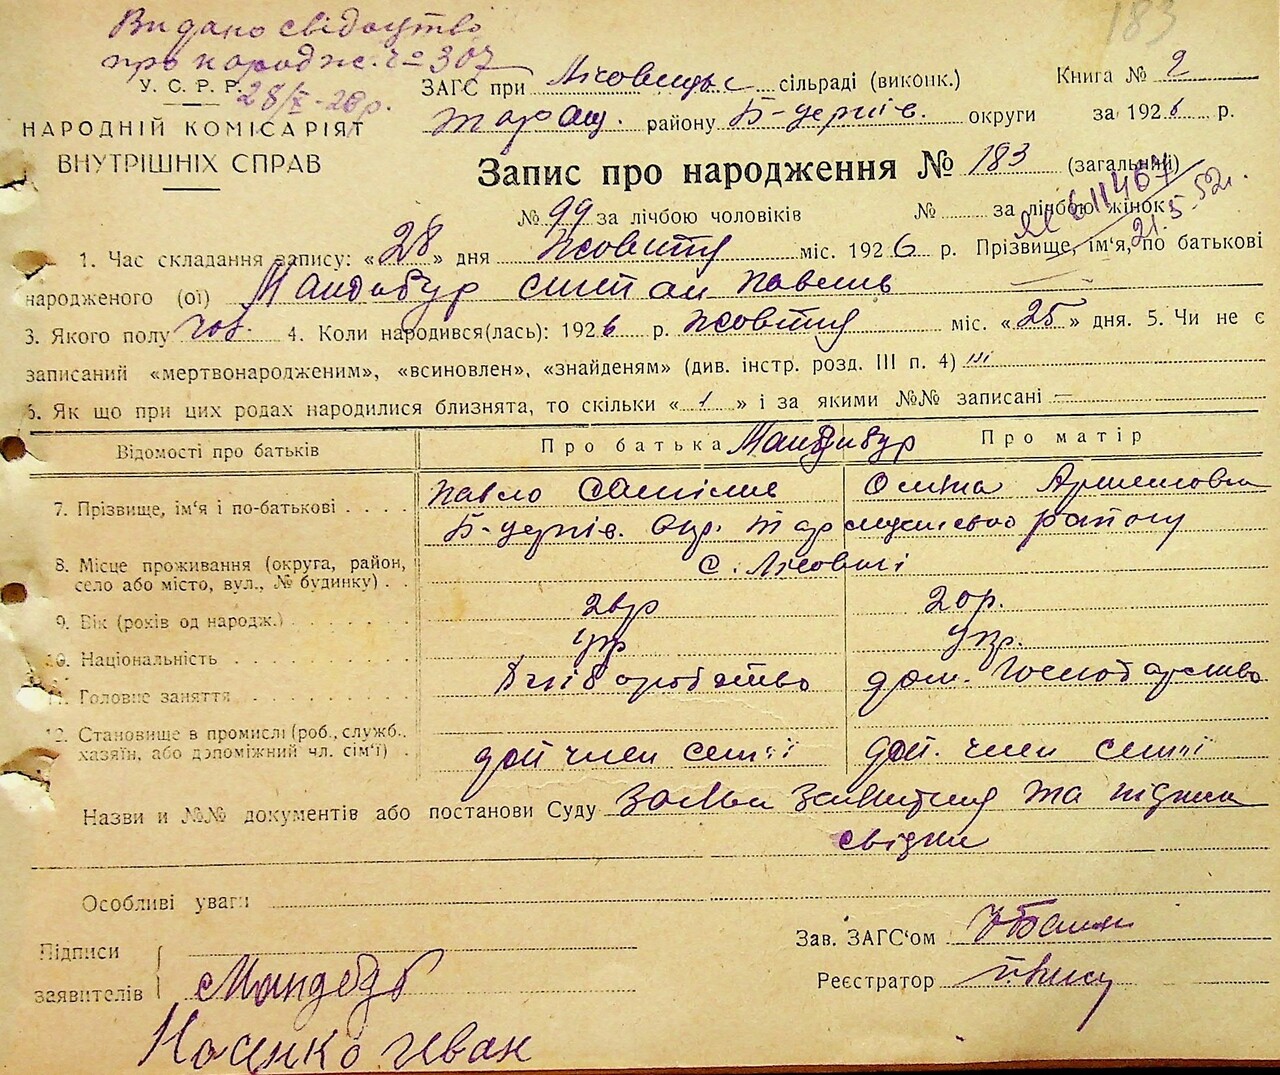 183
Видано свідоцтво
про народж. № 307
28/X-28р.
У. С. Р. Р.
НАРОДНІЙ КОМІСАРІЯТ
ВНУТРІШНІХ СПРАВ
ЗАГС при сільраді (виконк.)
Таращ. району Б-церків. округи
Книга № 2
за 1926 р.
Запис про народження № 183 (загальний)
№ 99 за лічбою чоловіків № за лічбою жінок
21.5.52г.
1. Час складання запису: «28» дня Жовтня міс. 1926 р. Прізвище, ім'я, по батькові
народженого (ої) Мандибур Степан
3. Якого полу чол. 4. Коли народився(лась): 1926 р. Жовтня міс. «25» дня. 5. Чи не є
записаний «мертвонародженим», «всиновлен», «знайденям» (див. інстр. розд. III п. 4) ні
6. Як що при цих родах народилися близнята, то скільки «1» і за якими №№ записані —
Відомості про батьків Про батька Мандибур Про матір
7. Прізвище, ім'я і по-батькові Павло
Б-церків. окр. Таращанського району
8. Місце проживання (округа, район, село або місто, вул., № будинку) с.
9. Вік (років од народж.) 20р.
10. Національність укр укр.
11. Головне заняття Хліборобство дом. господарство
12. Становище в промислі (роб., служб., хазяїн, або допоміжний чл. сім'ї) доп член семії доп. член семії
Назви и №№ документів або постанови Суду та
свідки
Особливі уваги
Підписи
заявителів Мандебур
Носенко Иван
Зав. ЗАГС'ом
Реєстратор